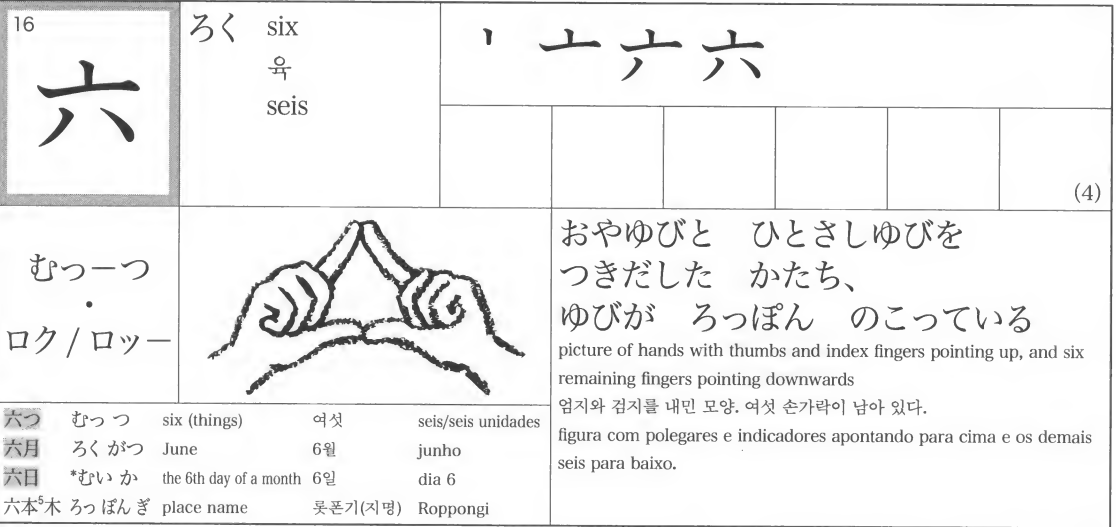 16
六
ろく six
육
seis
' 亠 六 六
(4)
むっーつ
・
ロク / ロッー
おやゆびと ひとさしゆびを
つきだした かたち、
ゆびが ろっぽん のこっている
picture of hands with thumbs and index fingers pointing up, and six
remaining fingers pointing downwards
엄지와 검지를 내민 모양. 여섯 손가락이 남아 있다.
figura com polegares e indicadores apontando para cima e os demais
seis para baixo.
六つ むっ つ six (things) 여섯 seis/seis unidades
六月 ろく がつ June 6월 junho
六日 *むい か the 6th day of a month 6일 dia 6
六本⁵木 ろっ ぽん ぎ place name 롯폰기(지명) Roppongi